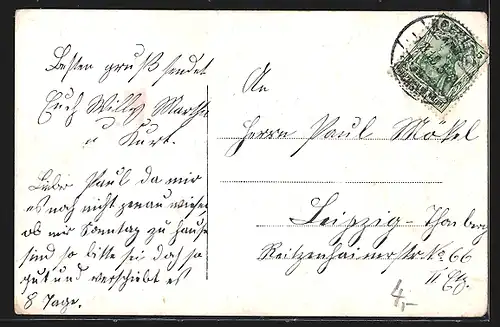 Besten Gruß sendet
Euch Willy Martha
u Kurt.
Lieber Paul da wir
es noch nicht genau wissen
ob wir Sonntag zu Hause
sind so bitte sei doch so
gut und verschiebt es
8 Tage.
An
Herrn Paul Möckel
Leipzig-Thonberg
Reitzenhainerstr No 66
II Etg.
4,-